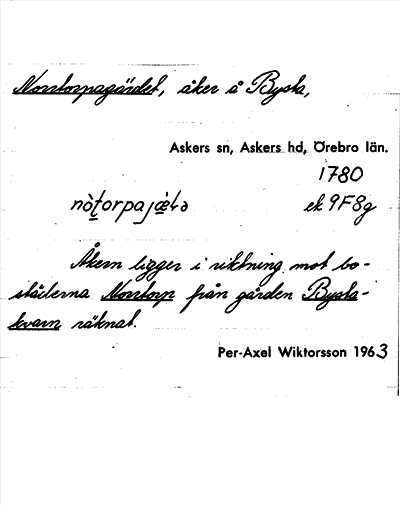 Norrtorpagärdet, åker å Bysta,
Askers sn, Askers hd, Örebro län.
1780
nòt̠orpajæ̀ɫə ek 9F8g
Åkern ligger i riktning mot bo-
städerna Norrtorp från gården Bysta-
kvarn räknat.
Per-Axel Wiktorsson 1963